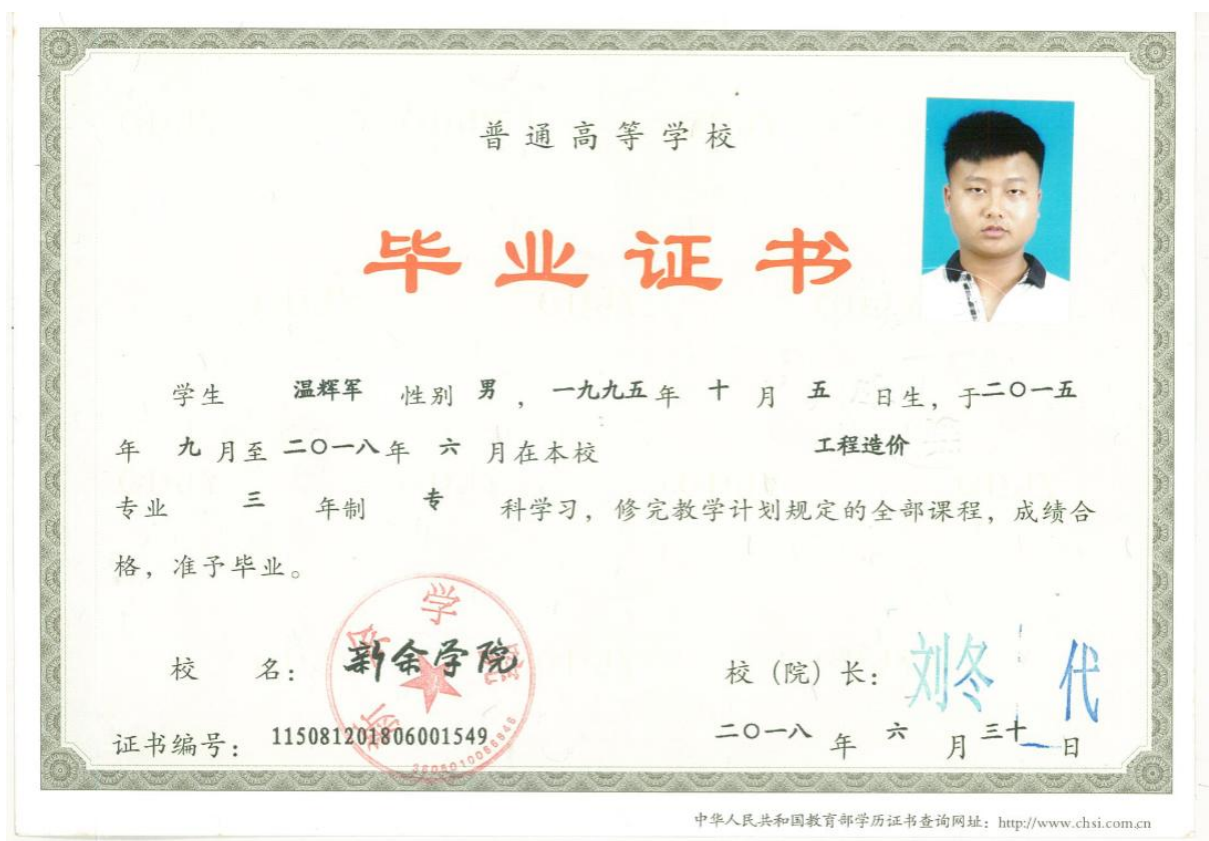 普通高等学校
毕业证书
学生 温辉军 性别 男 ，一九九五年 十 月 五 日生，于二〇一五
年 九 月至 二〇一八年 六 月在本校 工程造价
专业 三 年制 专 科学习，修完教学计划规定的全部课程，成绩合
格，准予毕业。
校 名： 新余学院
新余学院
校（院）长： 刘冬 代
证书编号： 115081201806001549
二〇一八 年 六 月 三十 日
中华人民共和国教育部学历证书查询网址：http://www.chsi.com.cn